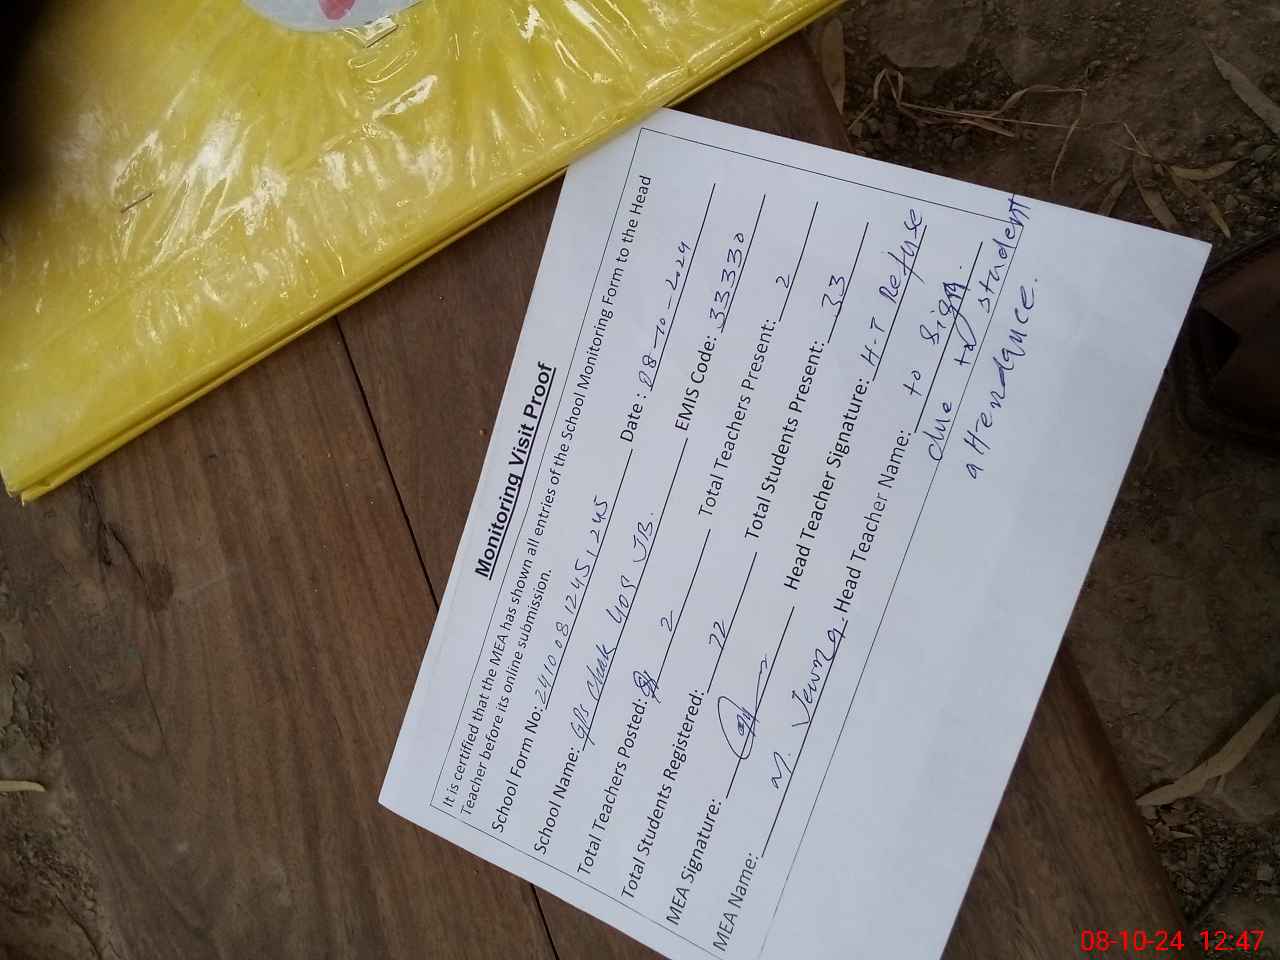 Monitoring Visit Proof
It is certified that the MEA has shown all entries of the School Monitoring Form to the Head
Teacher before its online submission.
School Form No: 241008 1245 1245 Date : 08-10-2024
School Name: GPS Chak 409 JB. EMIS Code: 333330
Total Teachers Posted: 2 Total Teachers Present: 2
Total Students Registered: 72 Total Students Present: 33
MEA Signature: Head Teacher Signature: H-T Refuse
MEA Name: M. Head Teacher Name: to Sign.
due to student
attendance.
08-10-24 12:47